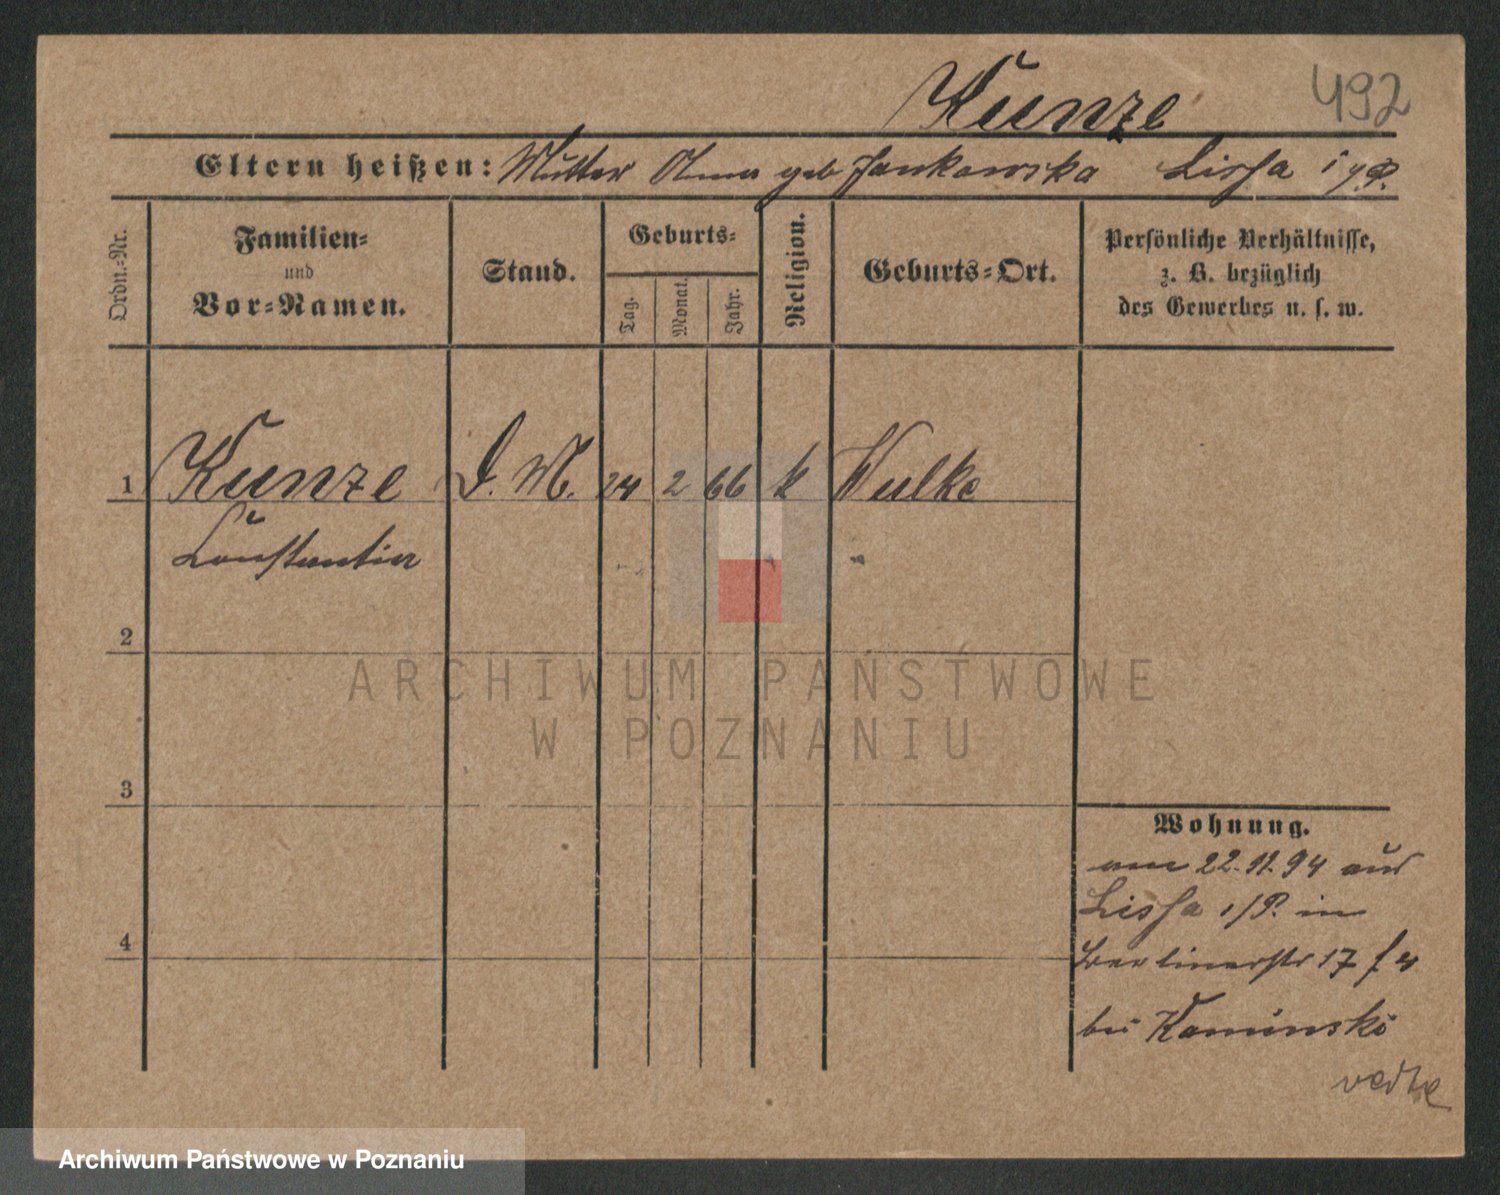 Kunze 492
Eltern heißen: Mutter Anna geb Jankowska Lissa i/P.
Ordn.-Nr.
Familien-
und
Vor-Namen.
Stand.
Geburts-
Tag.
Monat.
Jahr.
Religion.
Geburts-Ort.
Persönliche Verhältnisse,
z. B. bezüglich
des Gewerbes u. s. w.
1 Kunze D. M. 24 2 66 k Wulke
Constantin
2
3
4
Wohnung.
am 22.11.94 aus
Lissa i/P. in
Berlinerstr 17
bei Kaminski
ARCHIWUM PAŃSTWOWE
W POZNANIU
Archiwum Państwowe w Poznaniu